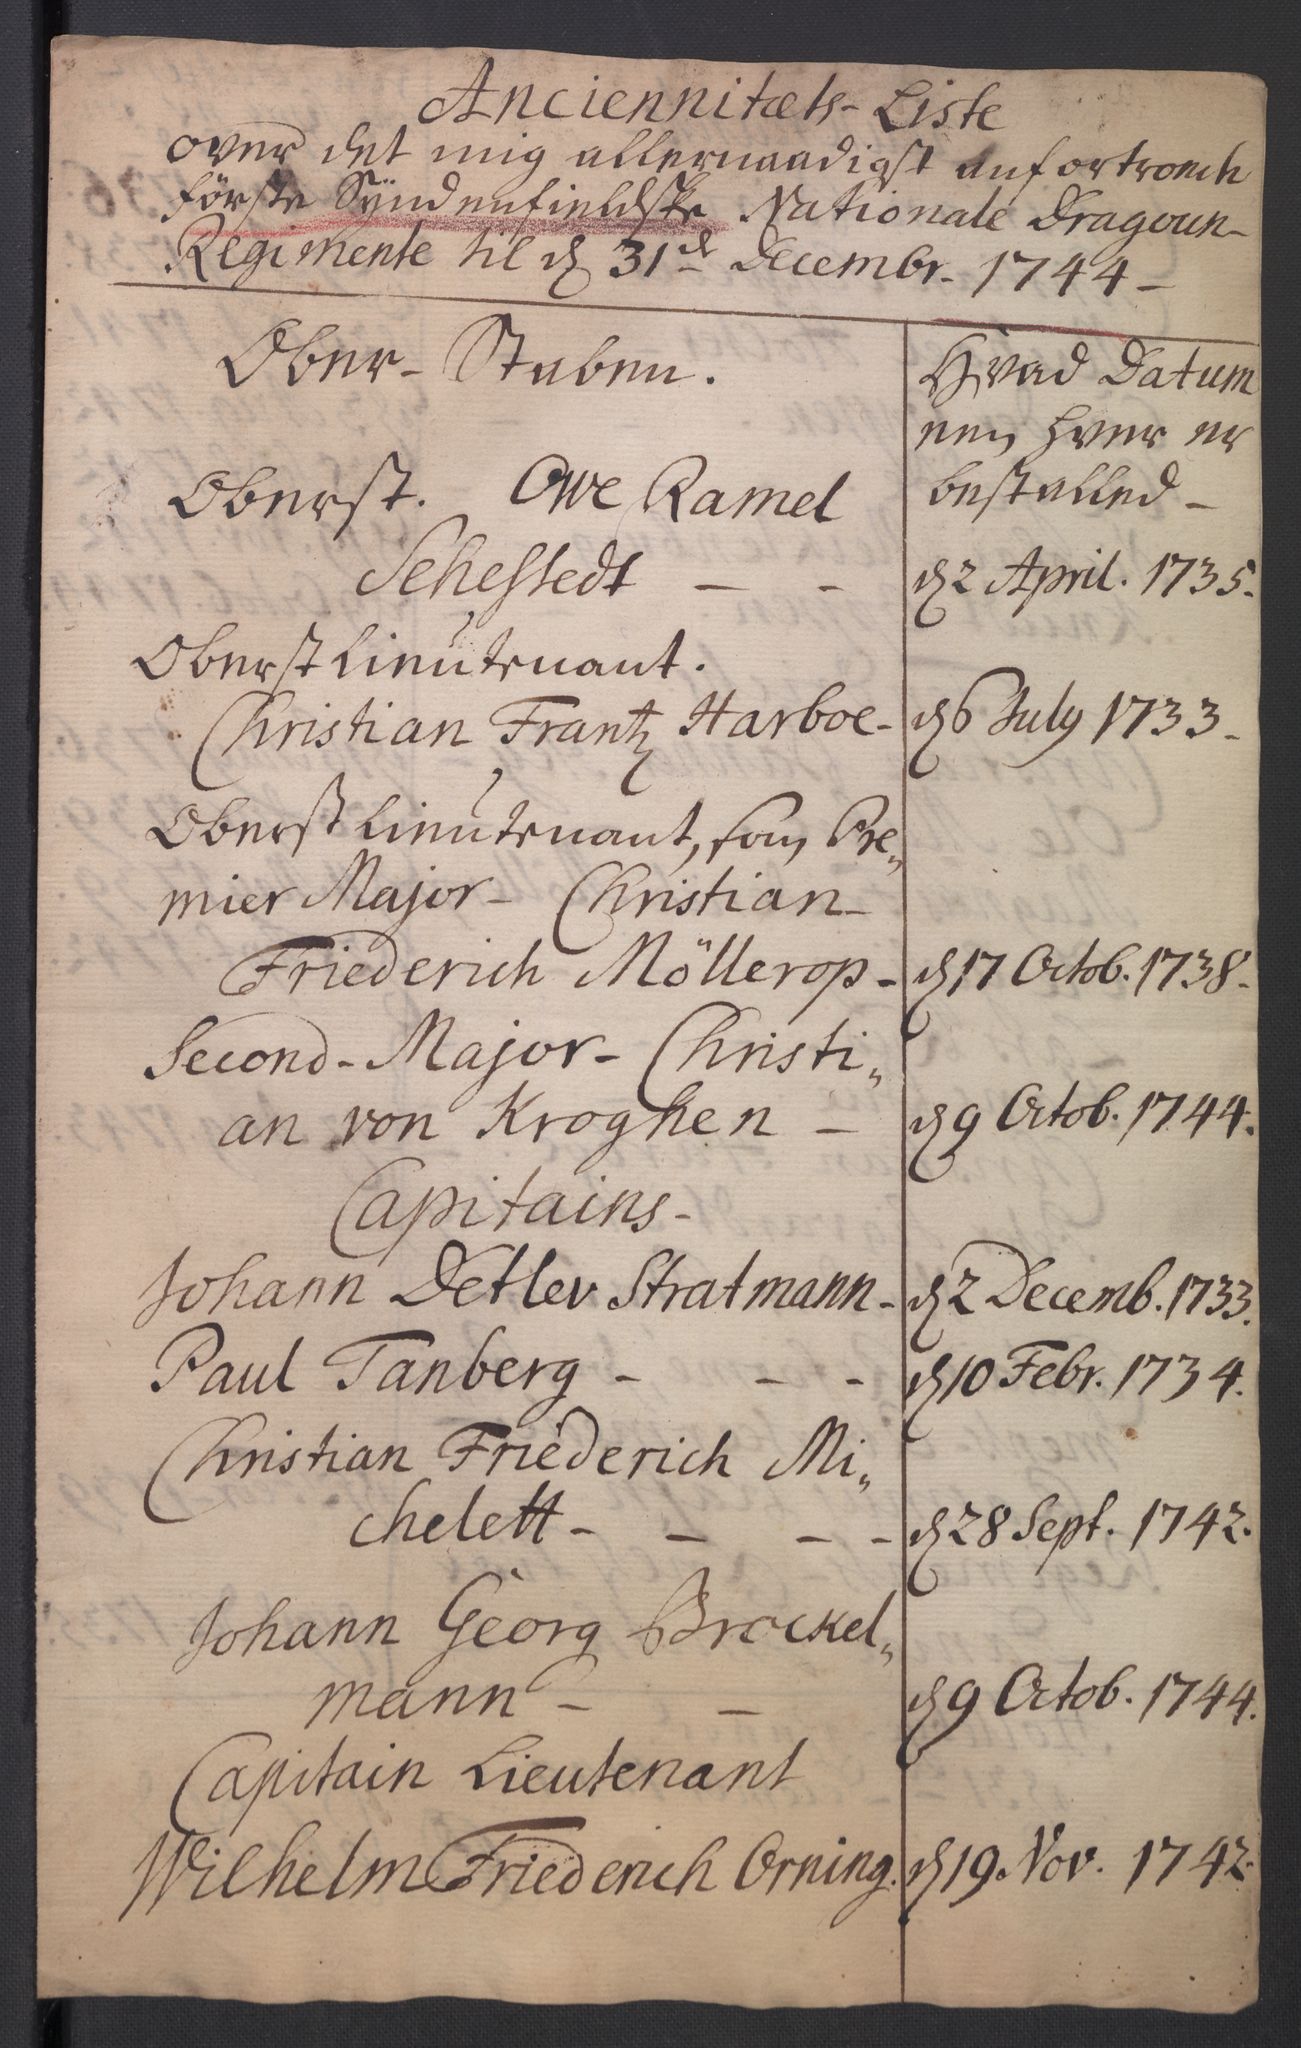 Anciennitæts-Liste
over det mig allernaadigst anfortroede
förste Syndenfieldske Nationale Dragoun-
Regimente til d 31de Decembr. 1744-
Ober-Staben.
Hvad Datum
een hver er
bestalled-
Oberst. Owe Ramel
Sehestedt - - d 2 April. 1735.
Oberstlieutenant.
Christian Frantz Harboe- d 6 July 1733-
Oberstlieutenant, som Pre„
mier Major- Christian-
Friederich Möllerop- d 17 Octob. 1738-
Second-Major- Christi„
an von Kroghen - d 9 Octob. 1744.
Capitains-
Johann Detlev Stratmann- d 2 Decemb. 1733.
Paul Tanberg - - - d 10 Febr. 1734.
Christian Friederich Mi„
chelett - - - - d 28 Sept. 1742.
Johann Georg Brockel„
mann - - d 9 Octob. 1744.
Capitain Lieutenant
Wilhelm Friederich Orning. d 19. Nov. 1742.